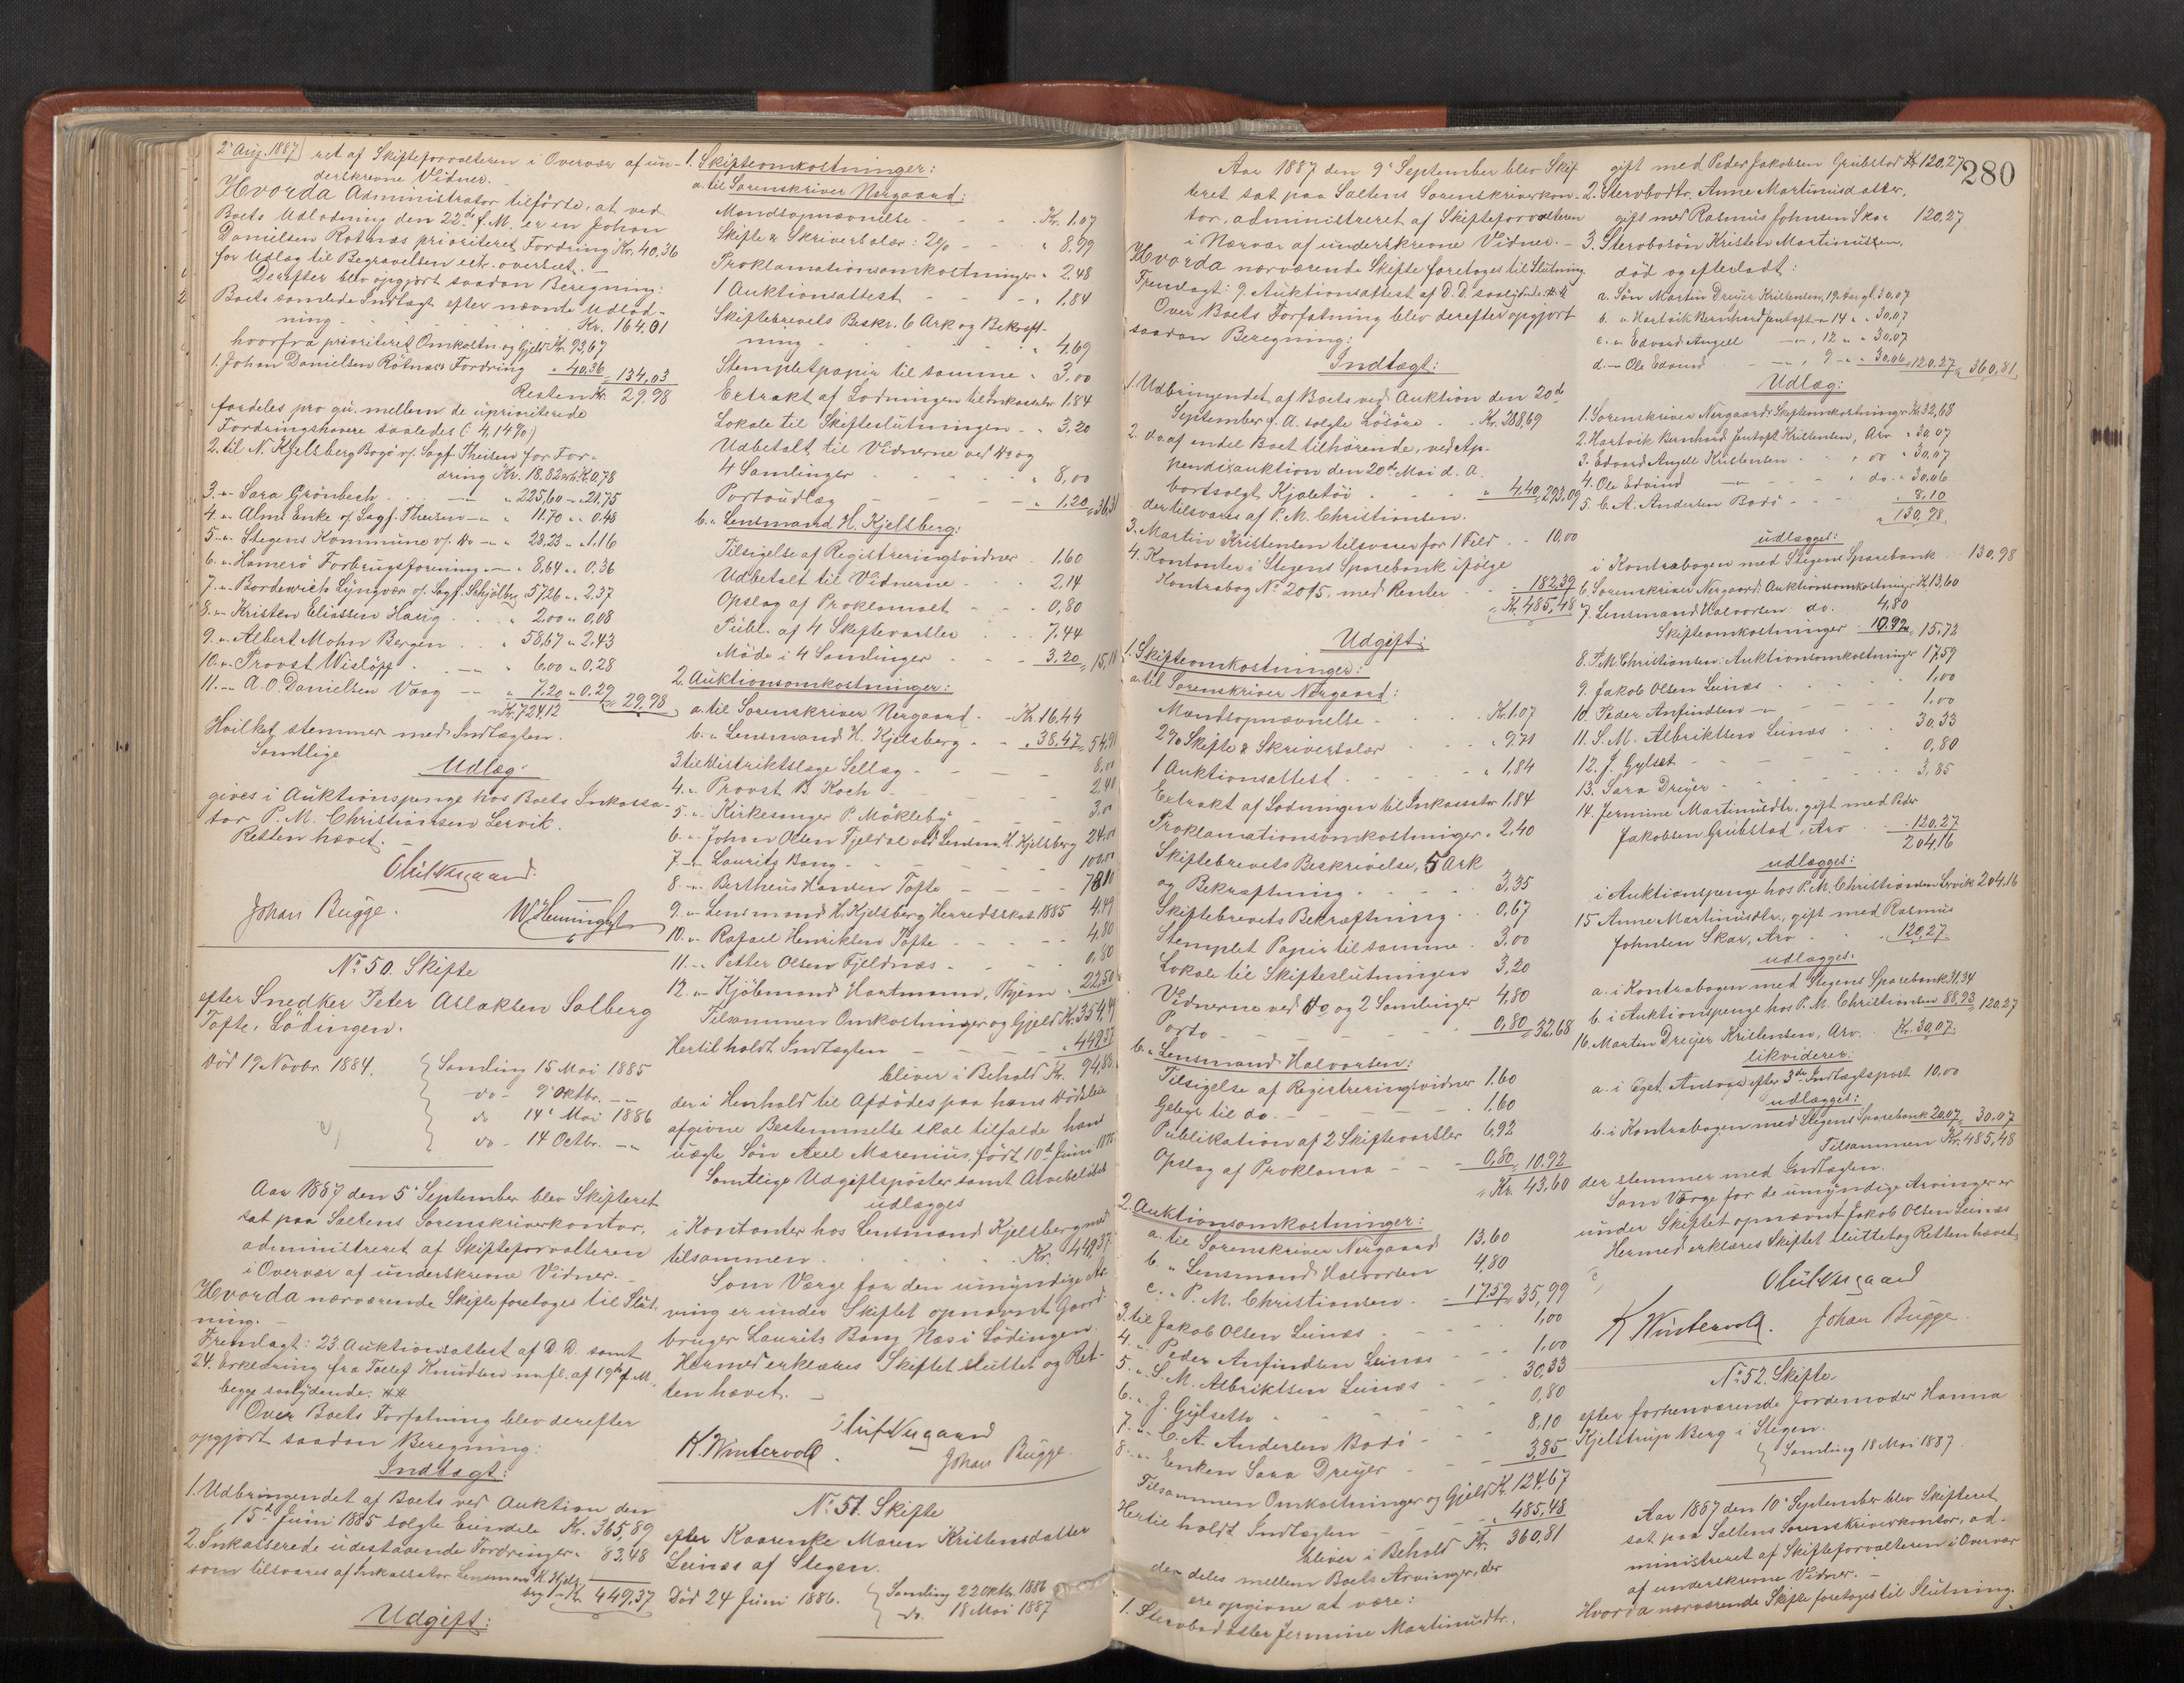 2' Aug. 1887 ret af Skifteforvalteren i Overvær af un-
derskrevne Vidner.
Hvorda Administrator tilførte, at ved
Boets Udlodning den 22de f. M. er en Johan
Danielsen Rotnæs prioriteret Fordring Kr. 40,36
for Udlæg til Begravelsen etr. overseet. -
Derefter blev opgjort saadan Beregning:
Boets samlede Indtægt efter nævnte Udlod-
ning . . . Kr. 164.01
hvorfra prioriteret Omkostn. og Gjeld Kr. 93,67
1. Johan Danielsen Rötnæs Fordring " 40,36 = 134,03
Resten Kr. 29,98
fordeles pro qu. mellem de uprioriterede
Fordringshavere saaledes (: 4,14 %:)
2. til N. Kjelsberg Bogø v/ Sagf. Theisen for For-
dring Kr. 18.82 m/ Kr. 0,78
3. " Sara Grönbech . . — " 225,60 - " 21,75
4. " Alms Enke v/ Sagf. Theisen - " 11.70 " " 0.48
5. " Stegens Kommune v/ do - " 28,23 " " 1.16
6. " Hamerö Forbrugsforening - " 8,64 " " 0.36
7. " Bordewich Lyngvær v/ Sagf. Schjölberg 57,26 " " 2.37
8. " Kristen Eliassen Haug . . " 2,00 " 0,08
9. " Albert Mohn Bergen . . " 58,67 " 2,43
10. " Provst Wislöff . — " 6,00 " 0,28
11. " A. O. Danielsen Vaag — " 7,20 " 0.29 = 29,98
Kr. 724,12
Hvilket stemmer med Indtægten.
Samtlige
Udlæg
gives i Auktionspenge hos Boets Inkassa-
tor P. M. Christiansen Lervik.
Retten hævet.
Oluf Nergaard.
Johan Bugge.
No. 50. Skifte
efter Snedker Peter Aslaksen Solberg
Tofte, Lödingen.
Död 17 Novbr 1884. Samling 15 Mai 1885
do - 9' Oktbr. - "
do 14' Mai 1886
do - 14 Octbr. - "
Aar 1887 den 5' September blev Skifteret
sat paa Saltens Sorenskriverkontor,
administreret af Skifteforvalteren
i Overvær af underskrevne Vidner. -
Hvorda nærværende Skifte foretoges til Slut-
ning. -
Fremlagt: 23. Auktionsattest af D. D. samt
24. Erklæring fra Tollef Knudsen m. fl. af 19de f. M.
begge saalydende. ##
Over Boets Forfatning blev derefter
opgjort saadan Beregning:
Indtægt:
1. Udbringendet af Boets ved Auktion den
15de Juni 1885 solgte Eiendele Kr. 365,89
2. Inkasserede udestaaende Fordringer " 83,48
som tilsvares af Inkassator Lensmand H. Kjels-
berg Kr. 449,37
Udgift:
1. Skifteomkostninger:
a. til Sorenskriver Nergaard:
Mandsopnævnelse - - - Kr. 1,07
Skifte & Skriversalær: 2 % - " 8.99
Proklamationsomkostninger " 2,48
1 Auktionsattest - - " 1,84
Skiftebrevets Beskr. 6 Ark og Bekræft-
ning . . . " 4,69
Stempletpapir til samme " 3,00
Extrakt af Lodningen til Inkassator 1,84
Lokale til Skifteslutningen - " 3,20
Udbetalt til Vidnerne ved do og
4 Samlinger . . . " 8,00
Portoudlæg - - - " 1,20 = 36,31
b. " Lensmand H. Kjelsberg:
Tilsigelse af Registreringsvidner . 1,60
Udbetalt til Vidnerne . . 2,14
Opslag af Proklamaet - - 0,80
Publ. af 4 Skiftevarsler . . 7,44
Möde i 4 Samlinger - - 3,20 = 15,18
2. Auktionsomkostninger:
a. til Sorenskriver Nergaard. - Kr. 16,44
b. " Lensmand H. Kjelsberg - " 38,47 = 54,91
3. til Distriktslæge Selläg - - — 8,00
4. " Provst B. Koch - — 2,40
5. " Kirkesanger P. Mökleby - — 3,00
6. " Johan Olsen Fjeldal ved Lensm. H. Kjelsberg 24,00
7. " Laurits Bang - - - 100,00
8. " Bertheus Hansen Tofte - - - 78,10
9. " Lensmand H. Kjelsberg Herredsskat 1885 4,49
10. " Rafael Henriksen Tofte - - - 4,80
11. " Petter Olsen Fjeldnæs - - - 0,80
12. " Kjöbmand Hartmann, Thjem " 22,50
Tilsammen Omkostninger og Gjeld Kr. 354,49
Hertil holdt Indtægten - - " 449,37
bliver i Behold Kr. 94,88
der i Henhold til Afdödes paa hans Dödsleie
afgivne Bestemmelse skal tilfalde hans
uægte Sön Axel Marenius, födt 10de Juni
Samtlige Udgiftsposter samt Arvebeløbet
udlægges
i Kontanter hos Lensmand Kjelsberg med
tilsammen . . . Kr. 449,37
Som Værge for den umyndige Ar-
ving er under Skiftet opnævnt Gaard-
bruger Laurits Bang Næs i Lödingen.
Hermed erklæres Skiftet sluttet og Ret-
ten hævet. -
Oluf Nergaard
K. Wintervold. Johan Bugge.
No. 51. Skifte
efter Kaarenke Maren Kristensdatter
Leinæs af Stegen.
Död 24 Juni 1886. Samling 22 Oktb. 1886
do. 18 Mai 1887
280
Aar 1887 den 9' September blev Skif-
teret sat paa Saltens Sorenskriverkon-
tor, administreret af Skifteforvalteren
i Nærvær af underskrevne Vidner. -
Hvorda nærværende Skifte foretoges til Slutning.
Fremlagt: 9. Auktionsattest af D. D. saalydende: ##
Over Boets Forfatning blev derefter opgjort
saadan Beregning:
Indtægt:
1. Udbringendet af Boets ved Auktion den 20de
September f. A. solgte Lösöre . . Kr. 288,69
2. do af endel Boet tilhörende, ved Ap-
pendixauktion den 20de Mai d. A.
bortsolgt Kjøletöi . . " 4,40 = 293,09
der tilsvares af P. M. Christiansen.
3. Martin Kristensen tilsvarer for 1 Fæld . . 10,00
4. Kontanter i Stegens Sparebank ifölge
Kontrabog No 2015. med Renter . . " 182,39
Kr. 485,48
Udgift:
1. Skifteomkostninger:
a. til Sorenskriver Nergaard:
Mandsopnævnelse - . . Kr. 1.07
2 % Skifte & Skriversalær . " 9.71
1 Auktionsattest . . . " 1,84
Extrakt af Lodningen til Inkassator 1,84
Proklamationsomkostninger " 2.40
Skiftebrevets Beskrivelse, 5 Ark
og Bekræftning . . . 3,35
Skiftebrevets Bekræftning . . 0,67
Stemplet Papir til samme . 3.00
Lokale til Skifteslutningen 3,20
Vidnerne ved do og 2 Samlinger 4,80
Porto - - - 0,80 = 32,68
b. " Lensmand Halvorsen:
Tilsigelse af Registreringsvidner 1,60
Gebyr til do. - - - 1.60
Publikation af 2 Skiftevarsler 6,92
Opslag af Proklama - - 0,80 = 10.92
Kr. 43,60
2. Auktionsomkostninger:
a. til Sorenskriver Nergaard 13,60
b. " Lensmand Halvorsen 4,80
c. " P. M. Christiansen . " 17,59 = 35,99
3. til Jakob Olsen Leinæs . . . 1,00
4. " Peder Anfindsen Leinæs . . . 1,00
5. " S. M. Albriktsen Leinæs . . . 30,33
6. " J. Gylseth . . . 0,80
7. " C. A. Andersen Bodö - - 8,10
8. " Enken Sara Dreyer - - 3,85
Tilsammen Omkostninger og Gjeld Kr. 124,67
Hertil holdt Indtægten - - " 485,48
bliver i Behold Kr. 360,81
der deles mellem Boets Arvinger, der
ere opgivne at være:
1. Stervbodatter Jermine Martinusdtr.
gift med Peder Jakobsen Grubstad Kr 120,27
2. Stervbodtr. Anne Martinusdatter,
gift med Rasmus Johnsen Skar 120,27
3. Stervbosön Kristen Martinussen,
död og efterladt:
a. Sön Martin Dreyer Kristensen, 19 Aar gl. 30,07
b. " Hartvik Bernhard Jentoft - " 14 " " 30,07
c. " Edvard Angell — " , 12 " " 30,07
d. — Ole Edvind — " , 9 - " 30,06 = 120.27 = 360,81
Udlæg:
1. Sorenskriver Nergaards Skifteomkostninger Kr 32,68
2. Hartvik Bernhard Jentoft Kristensen, Arv " 30,07
3. Edvard Angell Kristensen - - do " 30,07
4. Ole Edvind — " — do. " 30,06
5. C. A. Andersen Bodö - - - " 8,10
" 130,98
udlægges:
i Kontrabogen med Stegens Sparebank . . 130,98
6. Sorenskriver Nergaard: Auktionsomkostninger Kr 13,60
7. Lensmand Halvorsen: do. 4,80
Skifteomkostninger 10.92 = 15,72
8. P. M. Christiansen: Auktionsomkostninger 17,59
9. Jakob Olsen Leinæs - - - 1,00
10. Peder Anfindsen - " 1.00
11. S. M. Albriktsen Leinæs . . . 30,33
12. J. Gylset - - - 0,80
13. Sara Dreyer - - - 3,85
14. Jermine Martinusdtr., gift med Peder
Jakobsen Grubstad, Arv . . 120,27
204,16
udlægges:
i Auktionspenge hos P. M. Christiansen Lervik 204,16
15. Anne Martinusdtr., gift med Rasmus
Johnsen Skar, Arv . . 120,27
udlægges:
a. i Kontrabogen med Stegens Sparebank 31,34
b. i Auktionspenge hos P. M. Christiansen 88,93 = 120,27
16. Martin Dreyer Kristensen, Arv. . Kr. 30,07.
likviderer:
a. i Eget Ansvar efter 3die Indtægtspost 10,00
udlægges:
b. i Kontrabogen med Stegens Sparebank 20,07 = 30,07
Tilsammen Kr. 485,48
der stemmer med Indtægten.
Som Værge for de umyndige Arvinger er
under Skiftet opnævnt Jakob Olsen Leinæs
Hermed erklæres Skiftet sluttet og Retten hævet.
Oluf Nergaard
K. Wintervold. Johan Bugge.
No. 52. Skifte
efter forhenværende Jordemoder Hanna
Kjelstrup Berg i Stegen.
Samling 18 Mai 1887
Aar 1887 den 10' September blev Skifteret
sat paa Saltens Sorenskriverkontor, ad-
ministreret af Skifteforvalteren i Overvær
af underskrevne Vidner. -
Hvorda nærværende Skifte foretoges til Slutning.